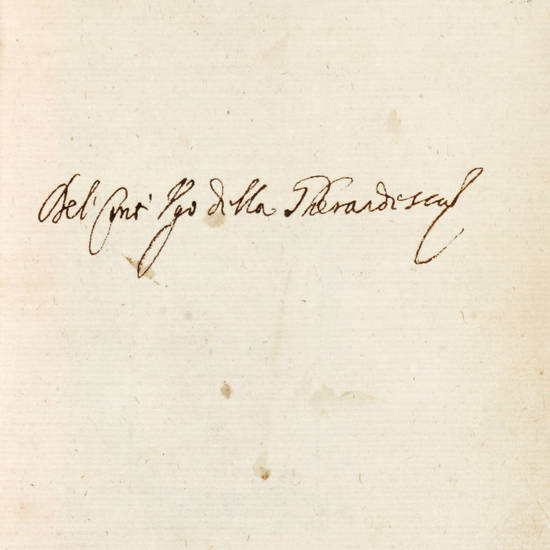 Del' Con.e Ugo della Gherardesca